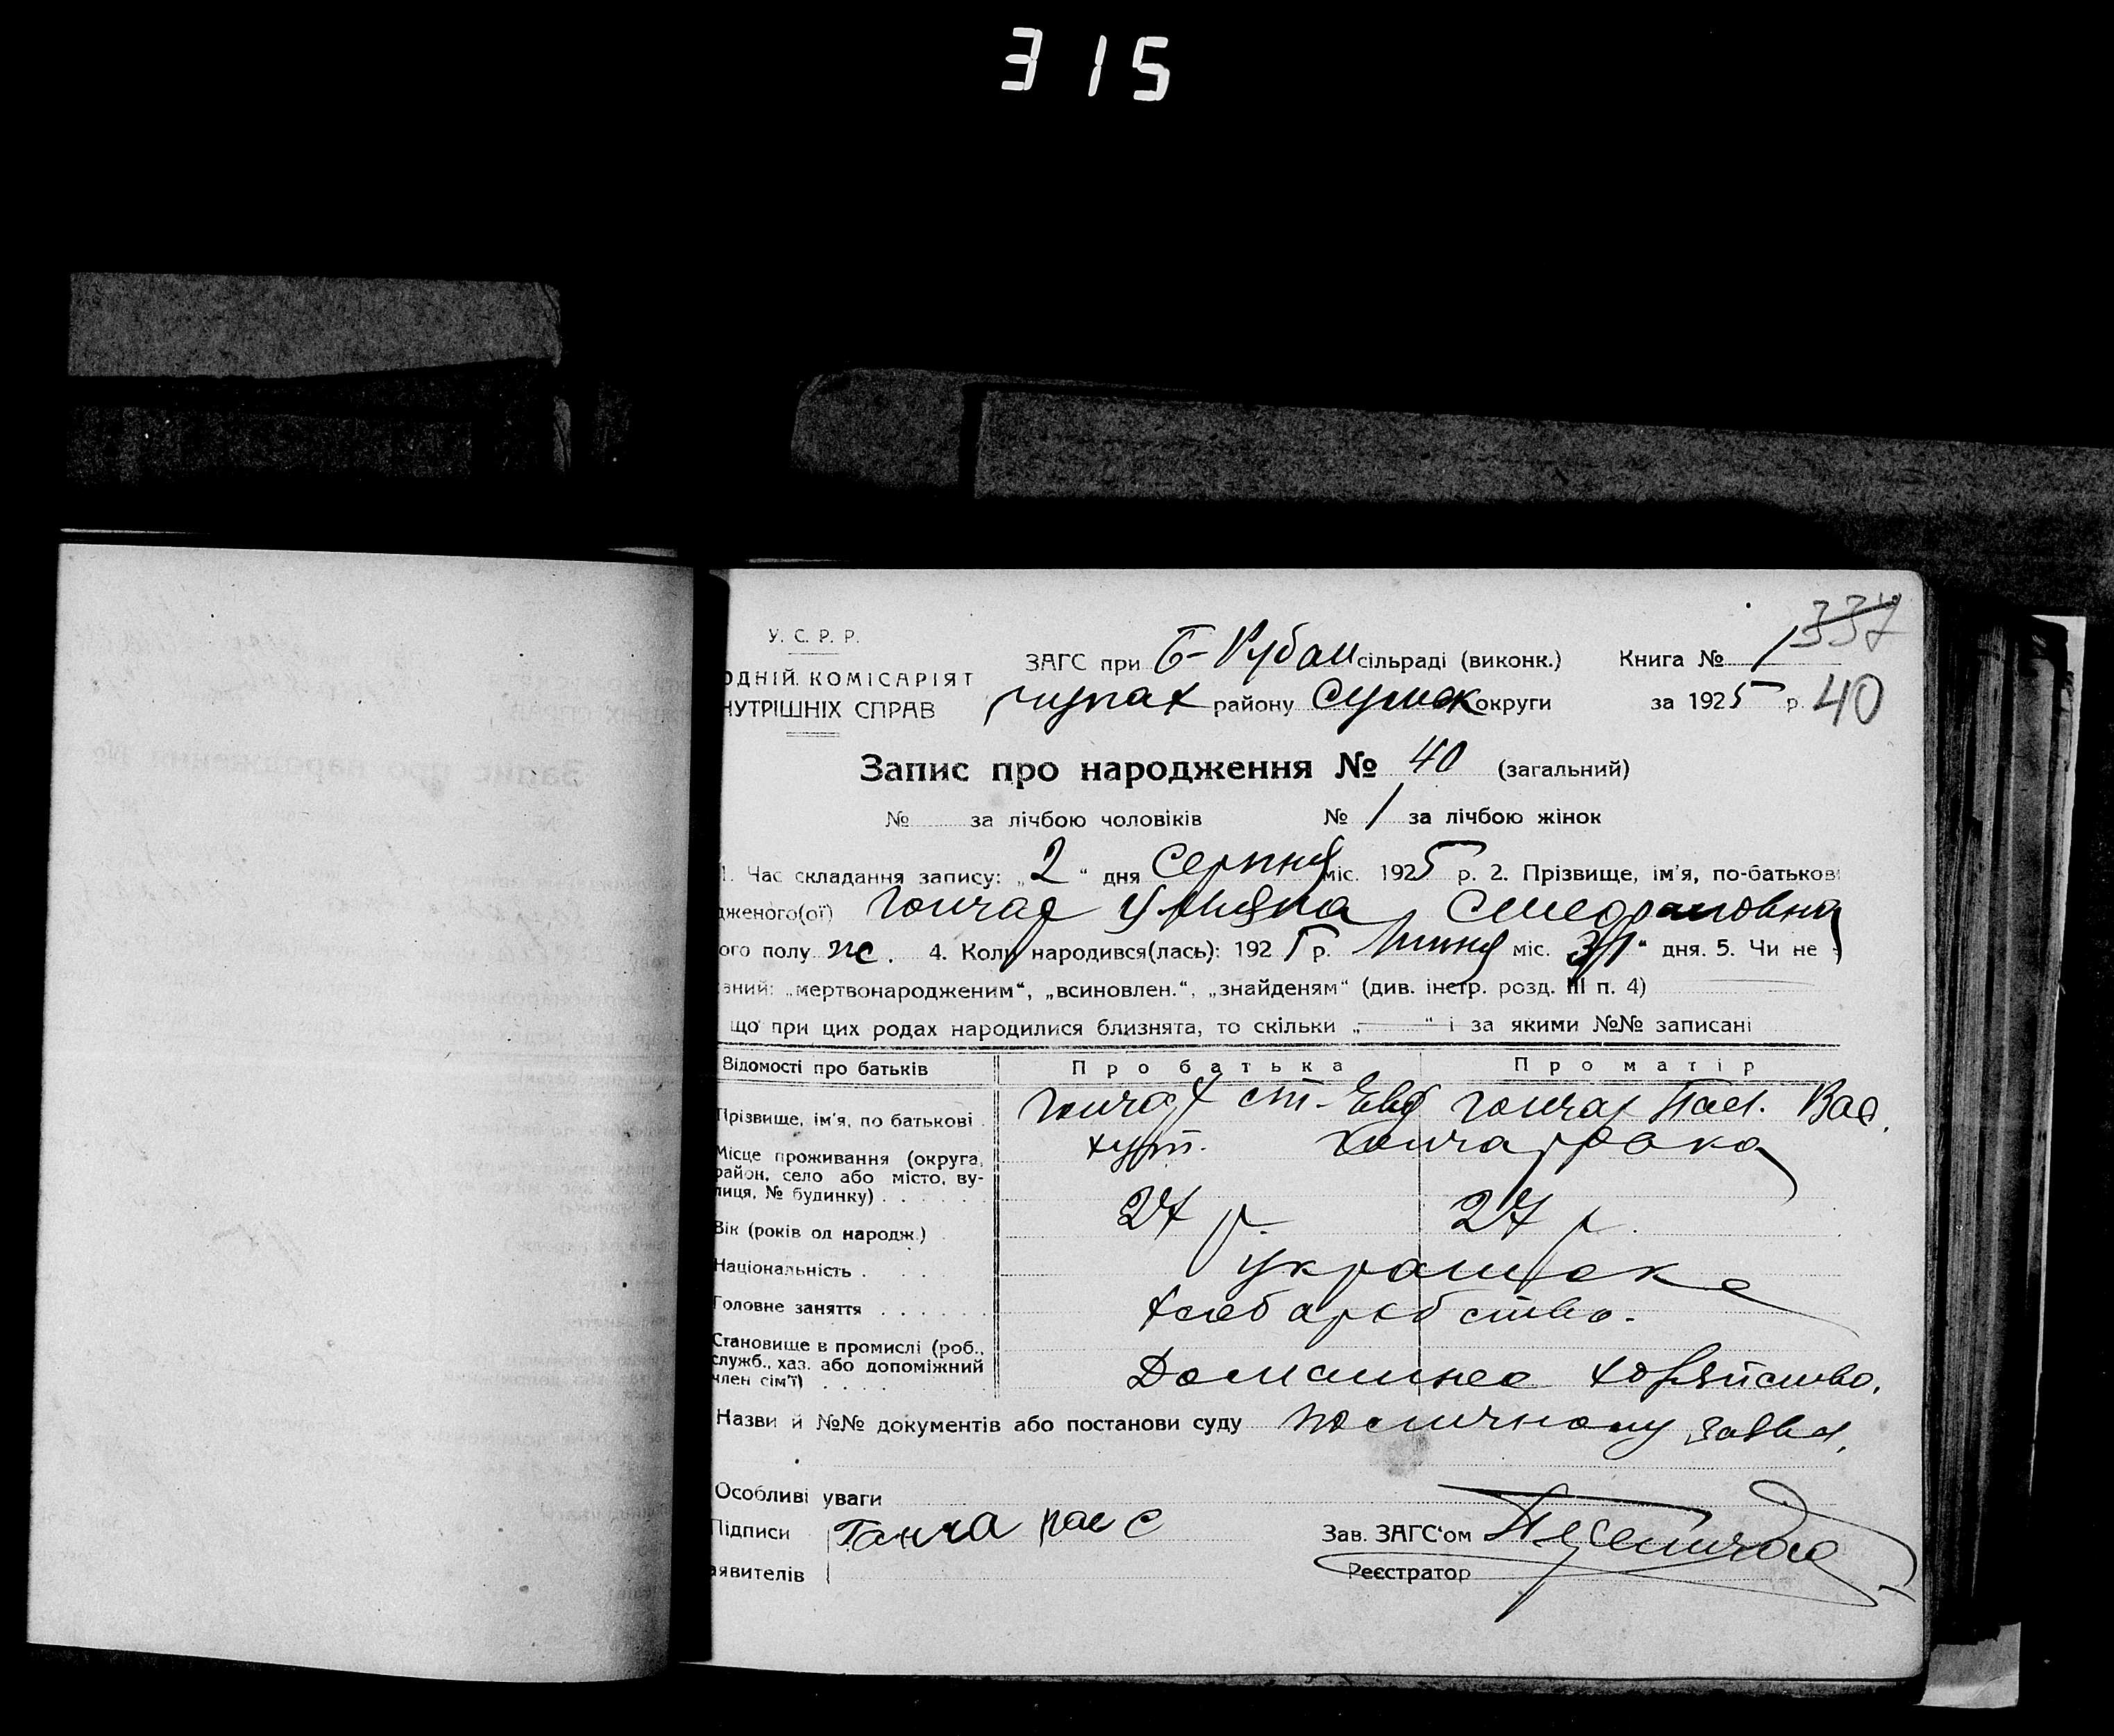 315
337
У. С. Р. Р.
ЗАГС при Б- Рубан сільраді (виконк.) Книга № 1
ОДНІЙ КОМІСАРІЯТ
НУТРІШНІХ СПРАВ
району Сумськ округи за 1925 р. 40
Запис про народження № 40 (загальний)
№ за лічбою чоловіків № 1 за лічбою жінок
1. Час складання запису: „2“ дня Серпня міс. 1925 р. 2. Прізвище, ім'я, по-батькові
дженого(ої) Гончар Уляна
ого полу ж. 4. Коли народився(лась): 1925 р. Липня міс. 31“ дня. 5. Чи не
заний: „мертвонародженим“, „всиновлен.“, „знайденям“ (див. інстр. розд. III п. 4)
що при цих родах народилися близнята, то скільки „ “ і за якими №№ записані
Відомості про батьків Про батька Про матір
Прізвище, ім'я, по батькові Гончар ст. Явд Гончар Пал. Вас.
Місце проживання (округа, район, село або місто, вулиця, № будинку) хут. Гончаровка
Вік (років од народж.) 27 р. 27 р.
Національність українська
Головне заняття хлебаробство.
Становище в промислі (роб., служб., хаз. або допоміжний член сім'ї) Домашнее хозяйство.
Назви й №№ документів або постанови суду по личному заявл.
Особливі уваги
Підписи Ганча
аявителів
Зав. ЗАГС'ом
Реєстратор